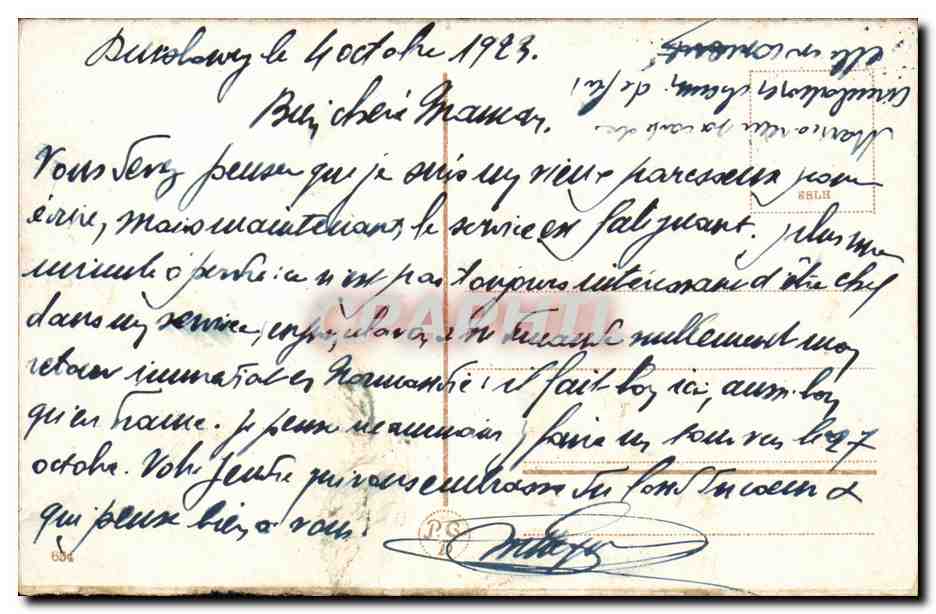 le 4 octobre 1923.
Bien chère Maman.
Vous devez penser que je suis un vieux paresseux pour
écrire, mais maintenant le service est fatiguant. plus une
minute à perdre ce n'est pas toujours intéressant d'être chef
dans un service, enfin, cela ne nullement mon
retour en Normandie; il fait bon ici, aussi bon
qu'en France. Je pense néanmoins faire un tour vers le 27
octobre. Votre gendre qui vous embrasse du fond du coeur &
qui pense bien à vous.
de fer
68LH
P.G.
634
CPAPHIL